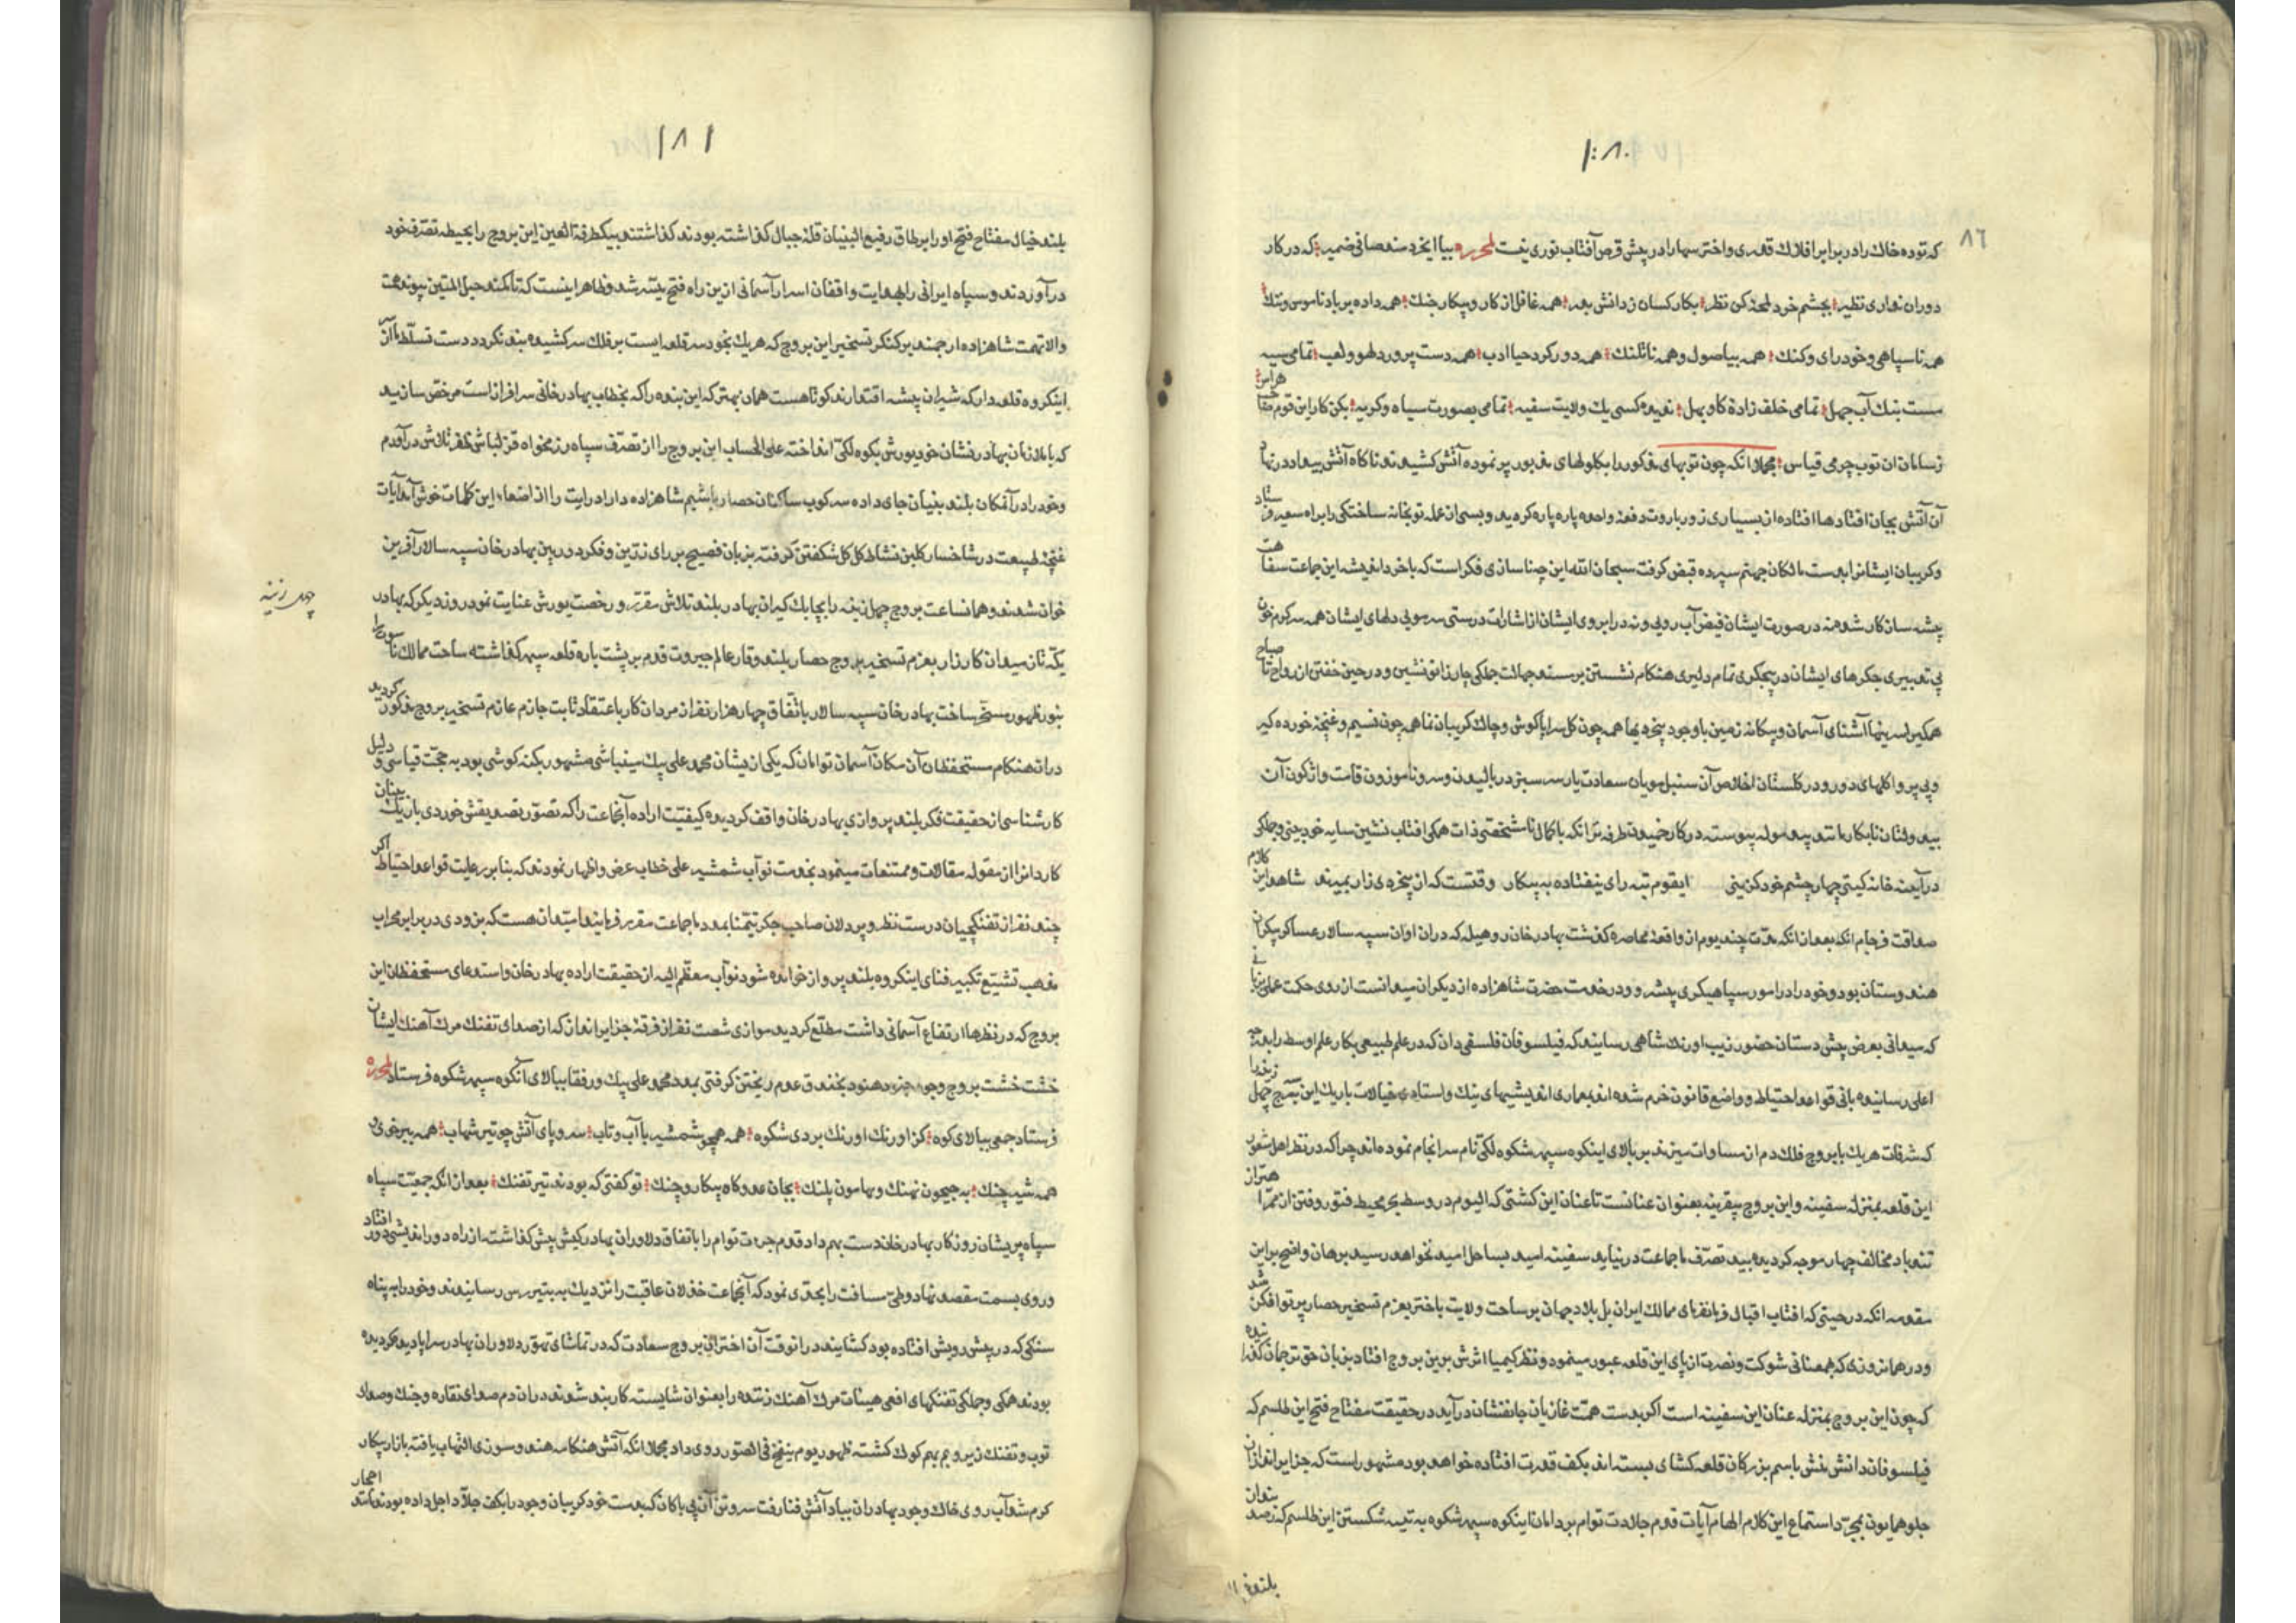 ١٨٠
٨٦
که توده خاك را در برابر افلاك قدری و اختر سها را در پیش قرص آفتاب نوری نیست لمحرره بیا ایخردمند صافی ضمیر که در کار
دوران نداری نظیر بچشم خرد لمحۀ کن نظر بکار کسان ز دانش بدر همه غافل از کار و پیکار جنك همه داده بر باد ناموس و ننك
همه ناسپاهی و خودرای و کنك همه بیاصول و همه همه دور کرد حیا ادب همه دست پرورد لهو و لعب تمامی سیه
مست بنك آب جهل تمامی خلف زادۀ کاو ندیده کسی یك ولایت سفیه تمامی بصورت سیاه و کریه بکن کار این قوم
هراس
ز سامان ان توب چرمی قیاس مجملا انکه چون توپهای مذکور را بکلولهای مزبور پر نموده آتش کشیدند ناکاه آتش بیداد در نهاد
آن آتش بجان افتادها افتاده از بسیاری زور باروت دفعۀ واحده پاره پاره کردید و بسی از عمله توبخانه ساختکی را براه سعیر
و کریبان ایشانرا بدست مالکان جهنم سپرده قبض کرفت سبحان الله این چنا سازی فکر است که با خرد اندیشه این جماعت
پیشه سان کار شدهمنه در صورت ایشان فیض آب رویی و نه در ابروی ایشان از اشارات درستی سر مویی دلهای ایشان همه سرکرم
بی تدبیری جکرهای ایشان در بیجکری تمام دلیری هنکام نشستن بر مسند جهالت جملکی چار زانو نشین و در حین خفتن از رواح تا
صباح
همکی آشنای آسمان و بیکانه زمین با وجود بیخردیها همه چون کل سراپا کوش و چاك کریبان نما همه چون نسیم و غنچه خورده کیر
و بی پروا کلهای دورو در کلستان اخلاص آن سنبل مویان سعادت یار سرسبز در بالیدن و سرو ناموزون قامت واژکون آن
بیدولتان نابکار مانند بید موله پیوسته در کار خمیدن طرفه تر انکه با کمال ذات همکی افتاب نشین سایه خود بینی و جملکی
در آینه خانه کیتی چهار چشم خود کزینی ایقوم تبه رای نیفتاده به پیکار وقتست که از پنجره زار بمیرند شاهد این
کلام
صداقت فرجام انکه بعد از انکه مدت چند یوم از واقعۀ محاصره کذشت بهادر خان روهیله که دران اوان سپه سالار عساکر بیکران
هندوستان بود و خود را در امور سپاهیکری پیشرو و در خدمت حضرت شاهزاده از دیکران میدانست از روی حکمت عملی
که سیدانی بعرض پیش دستان حضور زیب اورنك شاهی رسانید که فیلسوفان فلسفی دان که در علم طبیعی بکار علم اوسط را
اعلی رسانیده بانی قواعد احتیاط و واضع قانون خرم شده اند بمعاری اندیشیهای نیك و استادی خیالات باریك این بروج چهل
که شرفات هریك با بروج فلك دم از مساوات میزند بر بالای اینکوه سپهر شکوه سرانجام نموده اند چرا که در نظر اهل شعور
این قلعه بمنزله سفینه و این بروج بیقرینه بعنوان عنانست تا عنان این کشتی که الیوم در وسط بحر محیط فتور رفتن از
تندباد مخالف چهار موجه کردیده بید تصرف ماجماعت در نیاید سفینه امید بساحل امید نخواهد رسید برهان واضح براین
مقدمه انکه در حینی که افتاب اقبال فرمانفرمای ممالك ایران بل بلاد جهان بر ساحت ولایت باختر بعزم تسخیر حصار پرتو افکن
شد
و در همانروزی که همعنانی شوکت و نصرت از پای این قلعه عبور مینمود و نظر کیمیا اثرش برین بروج افتاد بزبان حق ترجمان
که چون این بروج بمنزله عنان این سفینه است اکر بدست همت غازیان جانفشان درآید در حقیقت مفتاح فتح این طلسم که
فیلسوفان دانش منش باسم بزرکان قلعه کشای بسته اند بکف قدرت افتاده خواهد بود مشهور است که جزایراندازان
جلو همایون بمجرد استماع این کلام الهام آیات قدم جلادت توام بر دامان اینکوه سپهر شکوه به تیشه شکستن این طلسم که
١٨١
بلند خیال مفتاح فتح او را بر طاق رفیع البنیان قلۀ جبال کذاشته بودند کذاشتند بیکطرفة العین این بروج را بحیطه تصرف خود
درآوردند و سپاه ایرانی را بهدایت واقفان اسرار آسمانی ازین راه فتح میسر شد و ظاهر اینست که تا کمند حبل المتین پیوند
والانهمت شاهزاده ارجمند بر کنکر تسخیر این بروج که هریك بخود سر قلعه ایست بر فلك سر کشیده بند نکردد دست تسلط ما از
اینکروه قلعه دار که شیران پیشه اقتدارند کوتاهست همان بهتر که این بنده را که بخطاب بهادر خانی سرافراز است مرخص سازید
که با ملازمان بهادر نشان خود یورش بکوه لکی انداخته علی الحساب این بروج را از تصرف سپاه رزمخواه قزلباش ظفر تلاش درآورم
و خود را در آنمکان بلند بنیان جای داده سرکوب ساکنان حصار باشیم شاهزاده دارا درایت را از اصغا این کلمات خوش آمد آیات
غنچه طبیعت در شاخسار کلبن نشاط کل کل شکفتن کرفته بزبان فصیح بر رای رزین و فکر دوربین بهادر خان سپه سالار آفرین
خوان شدند و همانساعت بروج چهل زینه را بچابك کیران بهادر بلند تلاش مقرر و رخصت یورش عنایت نمود روز دیکر که بهادر
چهل زینه
یکه تاز میدان کارزار بعزم تسخیر بروج حصار بلند وقار عالم جبروت قدم بر پشت باره قلعه سپهر کذاشته ساحت ممالك
بنور ظهور مسخر ساخت بهادر خان سپه سالار باتفاق چهار هزار نفر از مردان کار باعتقاد ثابت جازم عازم تسخیر بروج مذکور
کردید
دران هنکام مستحفظان آن مکان آسمان توامان که یکی از یشان محمد علی بیك مینباشی مشهور بکنه کوشی بود به حجت قیاس و
دلیل
کار شناسی از حقیقت فکر بلند پروازی بهادر خان واقف کردیده کیفیت اراده آنجماعت را که تصور تصدیقش خوردی
کاردانرا از مقوله مقالات و ممتنعات مینمود بخدمت نواب شمشیر علی خطاب عرض و اظهار نمودند که بنا بر رعایت قواعد احتیاط
اکر
چند نفر از تفنکچیان درست نظر و پردلان صاحب جکر تیمنا بمدد ماجماعت مقرر فرمایند امید ان هست که بزودی در برابر محراب
مذهب تشیع تکبیر فنای اینکروه بلند پرواز خوانده شود نواب معظم الیه از حقیقت اراده بهادر خان و استدعای مستحفظان این
بروج که در نظرها ارتفاع آسمانی داشت مطلع کردید موازی شصت نفر از فرقۀ جزایراندازان که از صدای تفنك مرك آهنك ایشان
خشت خشت بروج وجود هنود بخندق عدم ریختن کرفتی بمدد محمد علی بیك و رفقا ببالای آنکوه سپهر شکوه فرستاد لمحرره
فرستاد جمعی ببالای کوه کز اورنك اورنك بردی شکوه همه همچو شمشیر با آب و تاب سر و پای آتش چو تیر شهاب همه ببر خوی
همه شیر چنك به جیحون نهنك و بهامون پلنك بجان عدو کاه پیکار و چنك تو کفتی که بودند تیر تفنك بعد از انکه جمعیت سپاه
سپاه پریشان روزکار بهادر خان دست بهم داد قدم جرءت توام را باتفاق دلاوران بهادر کیش پیش کذاشت از راه دور اندیشی دور
افتاد
و روی بسمت مقصد نهاد و طی مسافت را بحدی نمود که آنجماعت خذلان عاقبت را نزدیك به تیررس رسانیدند و خود را به پناه
سنکی که در پیش رویش افتاده بود کشانید در انوقت آن اختران بروج سعادت که در تماشای تهور دلاوران بهادر سراپا دیده کردیده
بودند همکی و جملکی تفنکهای افعی هیئات مرك آهنك زنده را بعنوان شایسته کاربند شدند دران دم صدای نقاره و جنك و صدای
توب و تفنك زیر و بم بهم کوك کشته ظهور یوم ینفخ فی الصور روی داد مجملا انکه آتش هنکامه هند و سوزی التهاب یافته بازار پیکار
کرم شد آب روی خاك وجود بهادران بباد آتش فنا رفت سر و تن آن بی باکان که بدست خود کریبان وجود را بکف جلاد اجل داده بودند